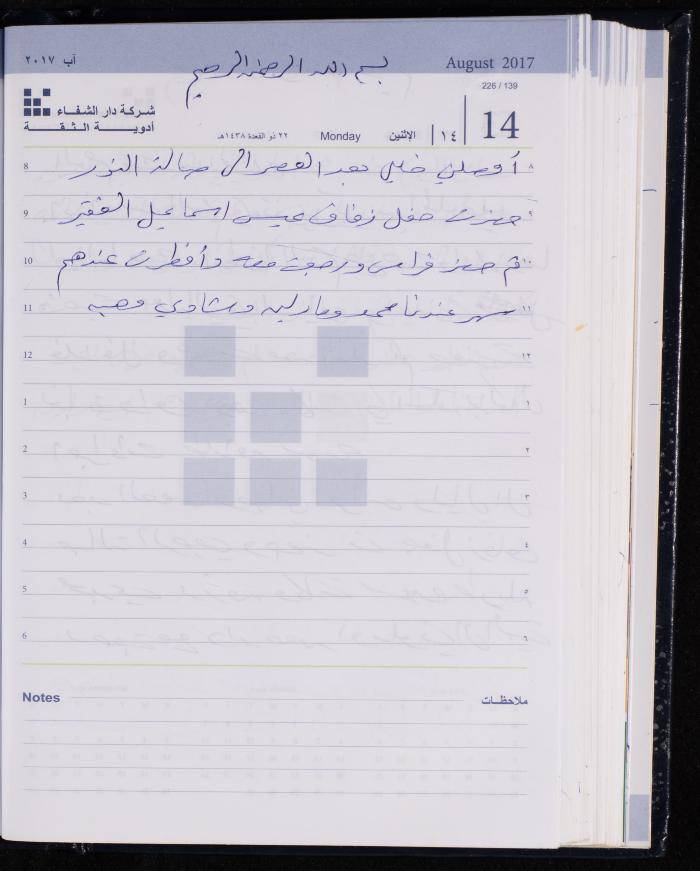 آب ٢٠١٧
August 2017
بسم الله الرحمن الرحيم
226 / 139
شركة دار الشفاء
أدوية الثقة
٢٢ ذو القعدة ١٤٣٨هـ Monday الإثنين ١٤ 14
8 أوصلني خالي بعد العصر الى صالة النور ٨
9 حضرت حفل زفاف عيسى اسماعيل الفقير ٩
10 ثم حضر فراس ورجعت معه وأفطرت عندهم ١٠
11 سهر عندنا محمد ومارلين وشادي وهبه ١١
12 ١٢
1 ١
2 ٢
3 ٣
4 ٤
5 ٥
6 ٦
Notes ملاحظات